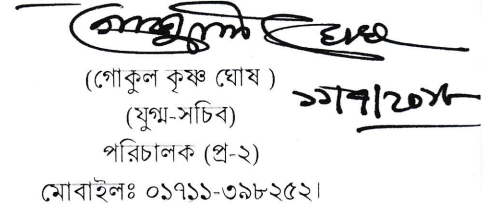 (গোকুল কৃষ্ণ ঘোষ )
১১/৭/২০১৮
(যুগ্ম-সচিব)
পরিচালক (প্র-২)
মোবাইলঃ ০১৭১১-৩৯৮২৫২।